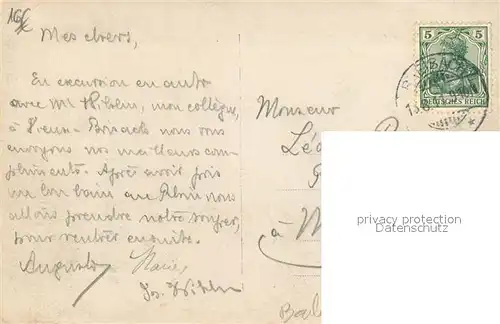 16
Mes chers,
En excursion en auto
avec Mr collègue,
à Neuf-Brisach nous vous
envoyons nos meilleurs com-
pliments. Après avoir pris
un bon bain au Rhin nous
allons prendre notre souper,
pour rentrer ensuite.
Auguste
Monsieur
Léo
à M
5 5
DEUTSCHES REICH
privacy protection
Datenschutz